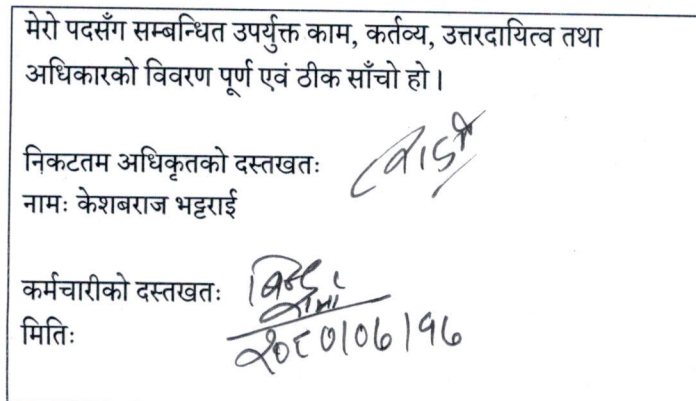 मेरो पदसँग सम्बन्धित उपर्युक्त काम, कर्तव्य, उत्तरदायित्व तथा
अधिकारको विवरण पूर्ण एवं ठीक साँचो हो।
निकटतम अधिकृतको दस्तखतः
नामः केशबराज भट्टराई
कर्मचारीको दस्तखतः
मितिः २०८०।०७।१७